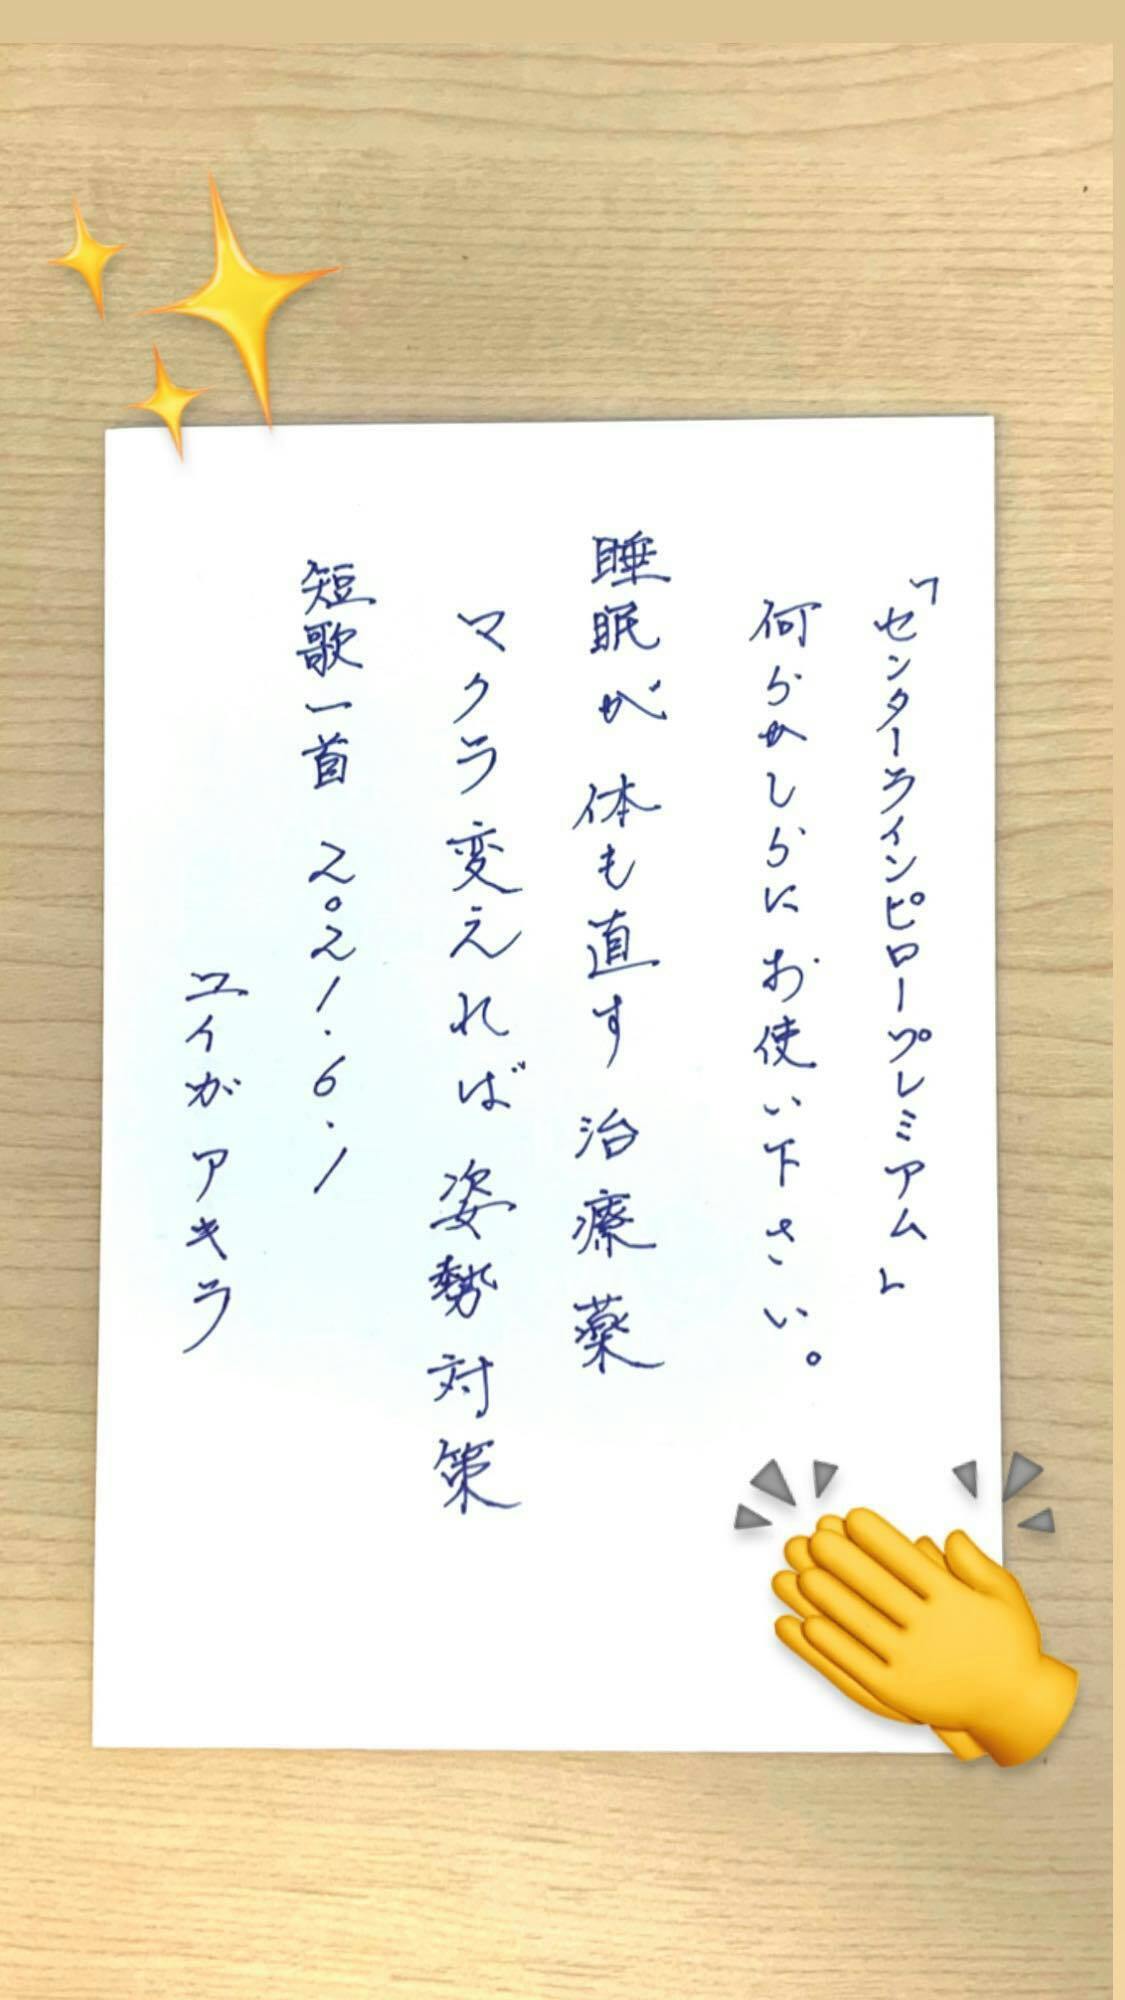 「センターラインピロープレミアム」
何らかしらにお使い下さい。
睡眠が 体も直す 治療薬
マクラ変えれば 姿勢対策
短歌一首 2021.6.1
ユイがアキラ